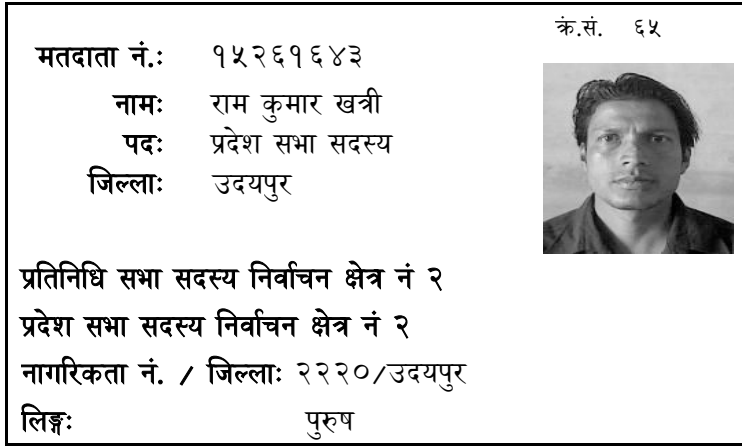 क्रं.सं. ६५
मतदाता नं.: १५२६१६४३
नामः राम कुमार खत्री
पदः प्रदेश सभा सदस्य
जिल्लाः उदयपुर
प्रतिनिधि सभा सदस्य निर्वाचन क्षेत्र नं २
प्रदेश सभा सदस्य निर्वाचन क्षेत्र नं २
नागरिकता नं. / जिल्लाः २२२०/उदयपुर
लिङ्गः पुरुष